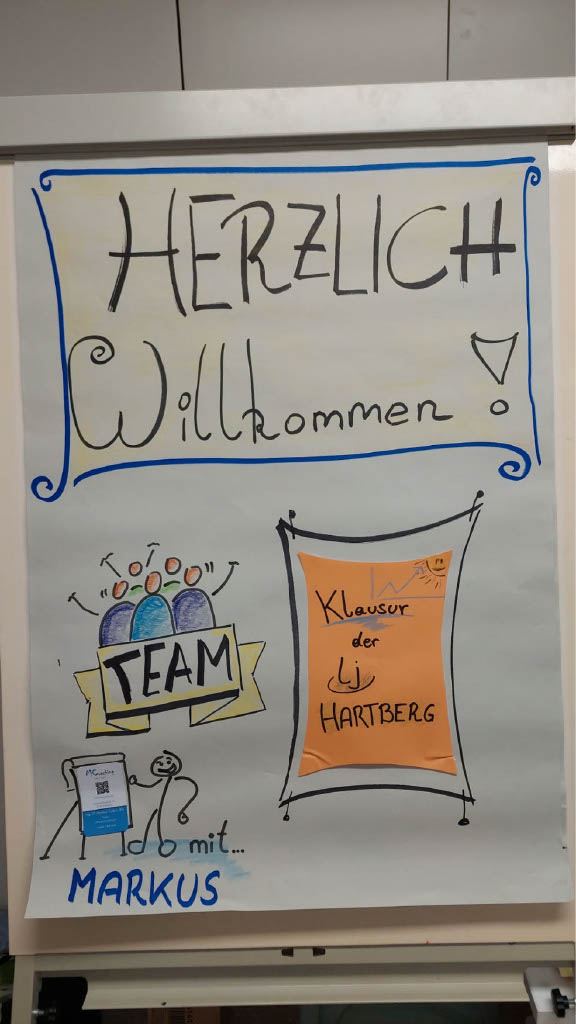 HERZLICH
Willkommen!
TEAM
Klausur
der
Lj
HARTBERG
mit...
MARKUS